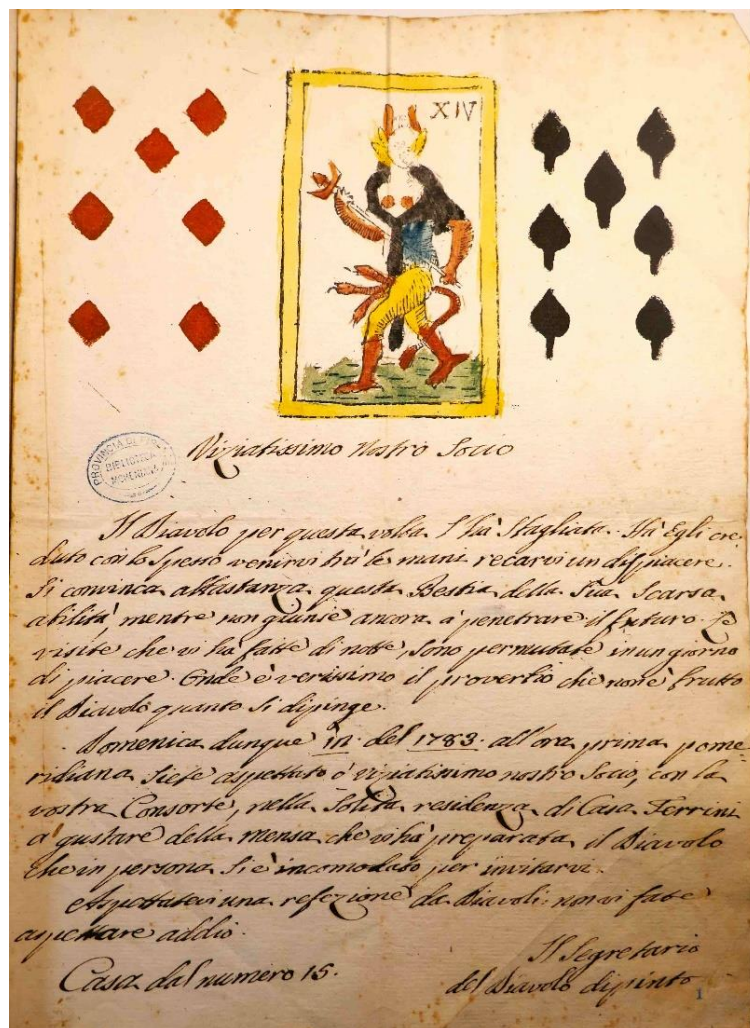 XIV
Viziatissimo Nostro Socio
PROVINCIA DI
BIBLIOTECA
MORENIANA
Il Diavolo per questa volta l'hà sbagliata. Hà Egli cre-
duto con lo spesso venirvi trà le mani recarvi un dispiacere.
Si convinca abbastanza questa Bestia della sua scarsa
abilità, mentre non giunse ancora à penetrare il futuro. Le
visite che vi hà fatte di notte, sono permutate in un giorno
di piacere. Onde è verissimo il proverbio che non è brutto
il Diavolo quanto si dipinge.
Domenica dunque del 1783. all'ora prima pome-
ridiana siete aspettato ò viziatissimo nostro Socio, con la
vostra Consorte, nella solita residenza di Casa Ferrini
a gustare della mensa che vi hà preparata il Diavolo
che in persona si è incomodato per invitarvi.
Aspettatevi una refezione da Diavoli: non vi fate
aspettare addio.
Il Segretario
Casa dal numero 15.
del Diavolo dipinto
1